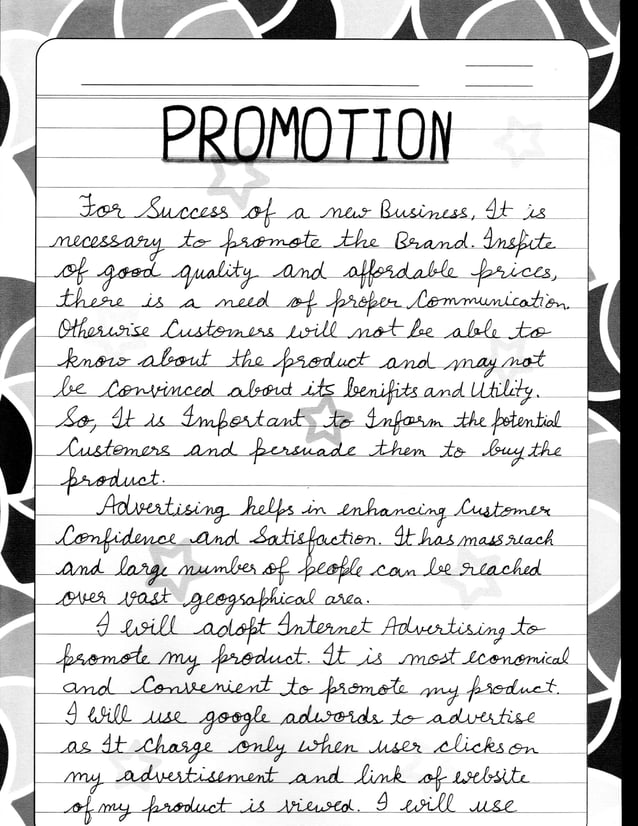 PROMOTION
For Success of a new Business, It is
necessary to promote the Brand. Inspite
of good quality and affordable prices,
there is a need of proper Communication.
Otherwise Customers will not be able to
know about the product and may not
be Convinced about its benifits and Utility.
So, It is Important to Inform the potential
Customers and persuade them to buy the
product.
Advertising helps in enhancing Customer
Confidence and Satisfaction. It has mass reach
and large number of people can be reached
over vast geographical area.
I will adopt Internet Advertising to
promote my product. It is most economical
and Convenient to promote my product.
I will use google adwords to advertise
as It charge only when user clicks on
my advertisement and link of website
of my product is viewed. I will use